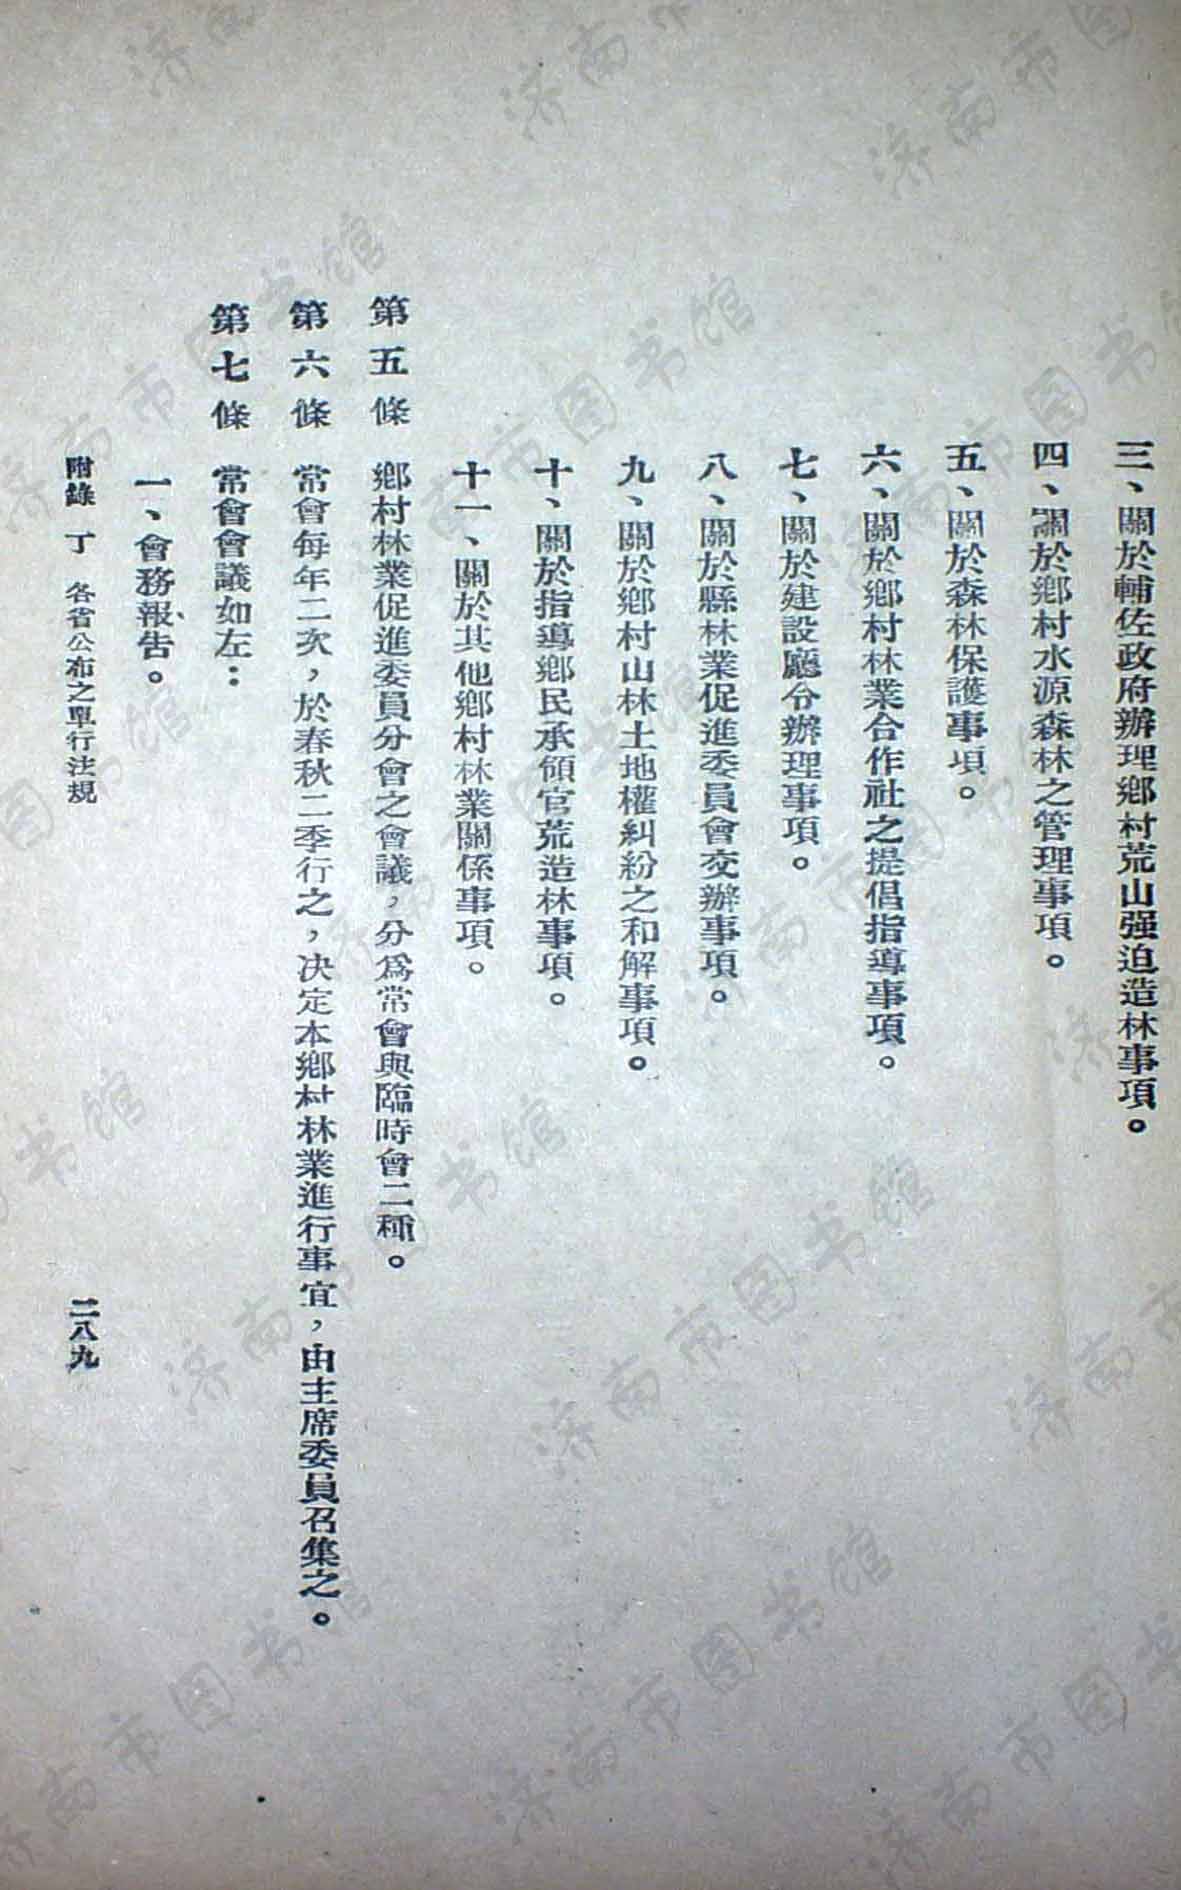 三、關於輔佐政府辦理鄉村荒山强迫造林事項。
四、關於鄉村水源森林之管理事項。
五、關於森林保護事項。
六、關於鄉村林業合作社之提倡指導事項。
七、關於建設廳令辦理事項。
八、關於縣林業促進委員會交辦事項。
九、關於鄉村山林土地權糾紛之和解事項。
十、關於指導鄉民承領官荒造林事項。
十一、關於其他鄉村林業關係事項。
第五條 鄉村林業促進委員分會之會議，分爲常會與臨時會二種。
第六條 常會每年二次，於春秋二季行之，决定本鄉村林業進行事宜，由主席委員召集之。
第七條 常會會議如左：
一、會務報告。
附錄 丁 各省公布之單行法規 二八九
济南市图书馆